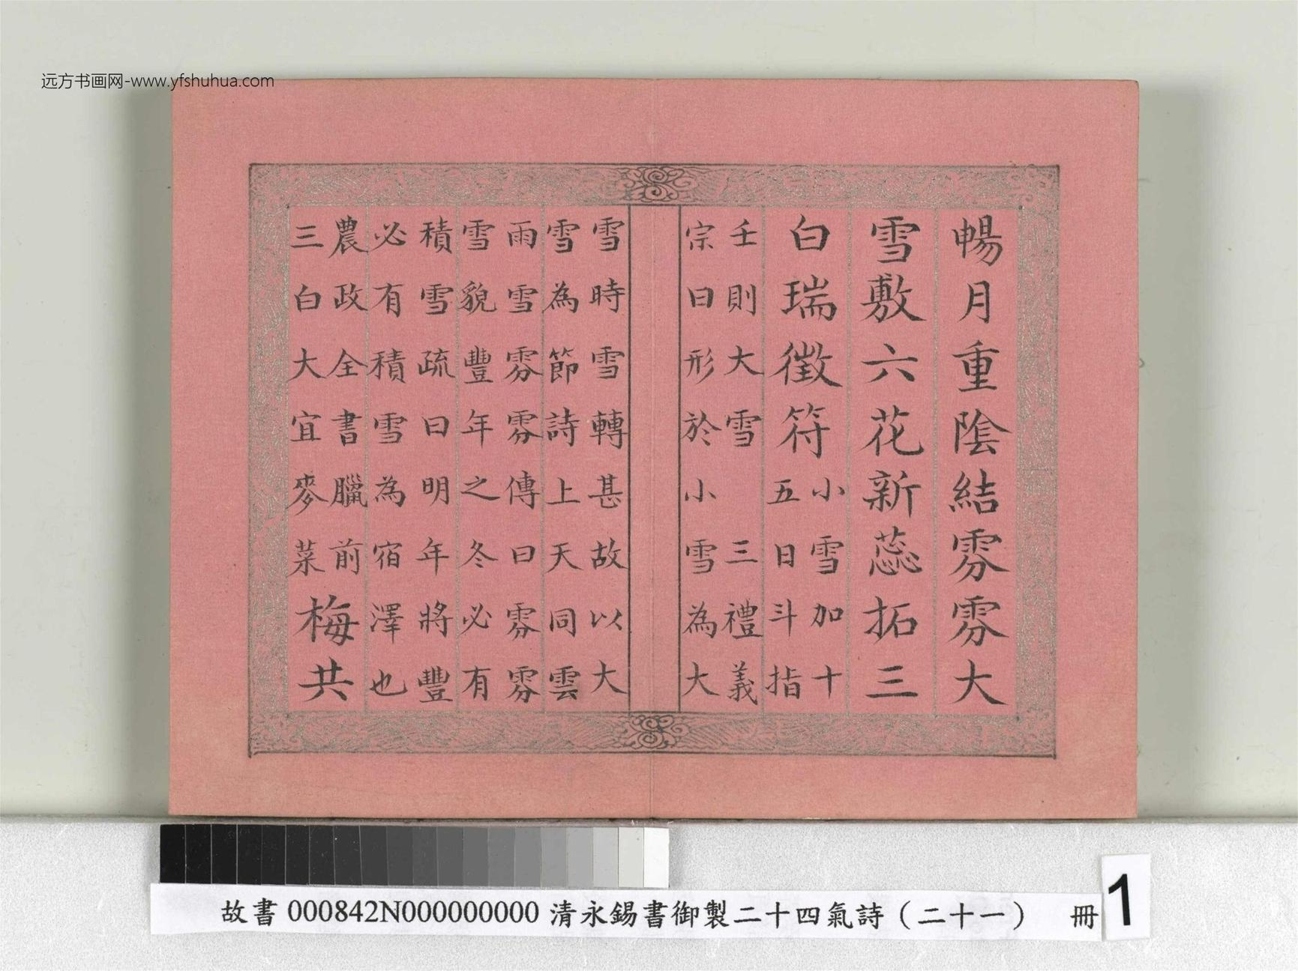 远方书画网-www.yfshuhua.com
暢月重陰結雰雰大
雪敷六花新蕊拓三
白瑞徵符
小雪加十
五日斗指
壬則大雪三禮義
宗曰形於小雪為大
雪時雪轉甚故以大
雪為節詩上天同雲
雨雪雰雰傳曰雰雰
雪貌豐年之冬必有
積雪疏曰明年將豐
必有積雪為宿澤也
農政全書臘前
三白大宜麥菜
梅共
故書 000842N000000000 清永錫書御製二十四氣詩（二十一） 冊 1